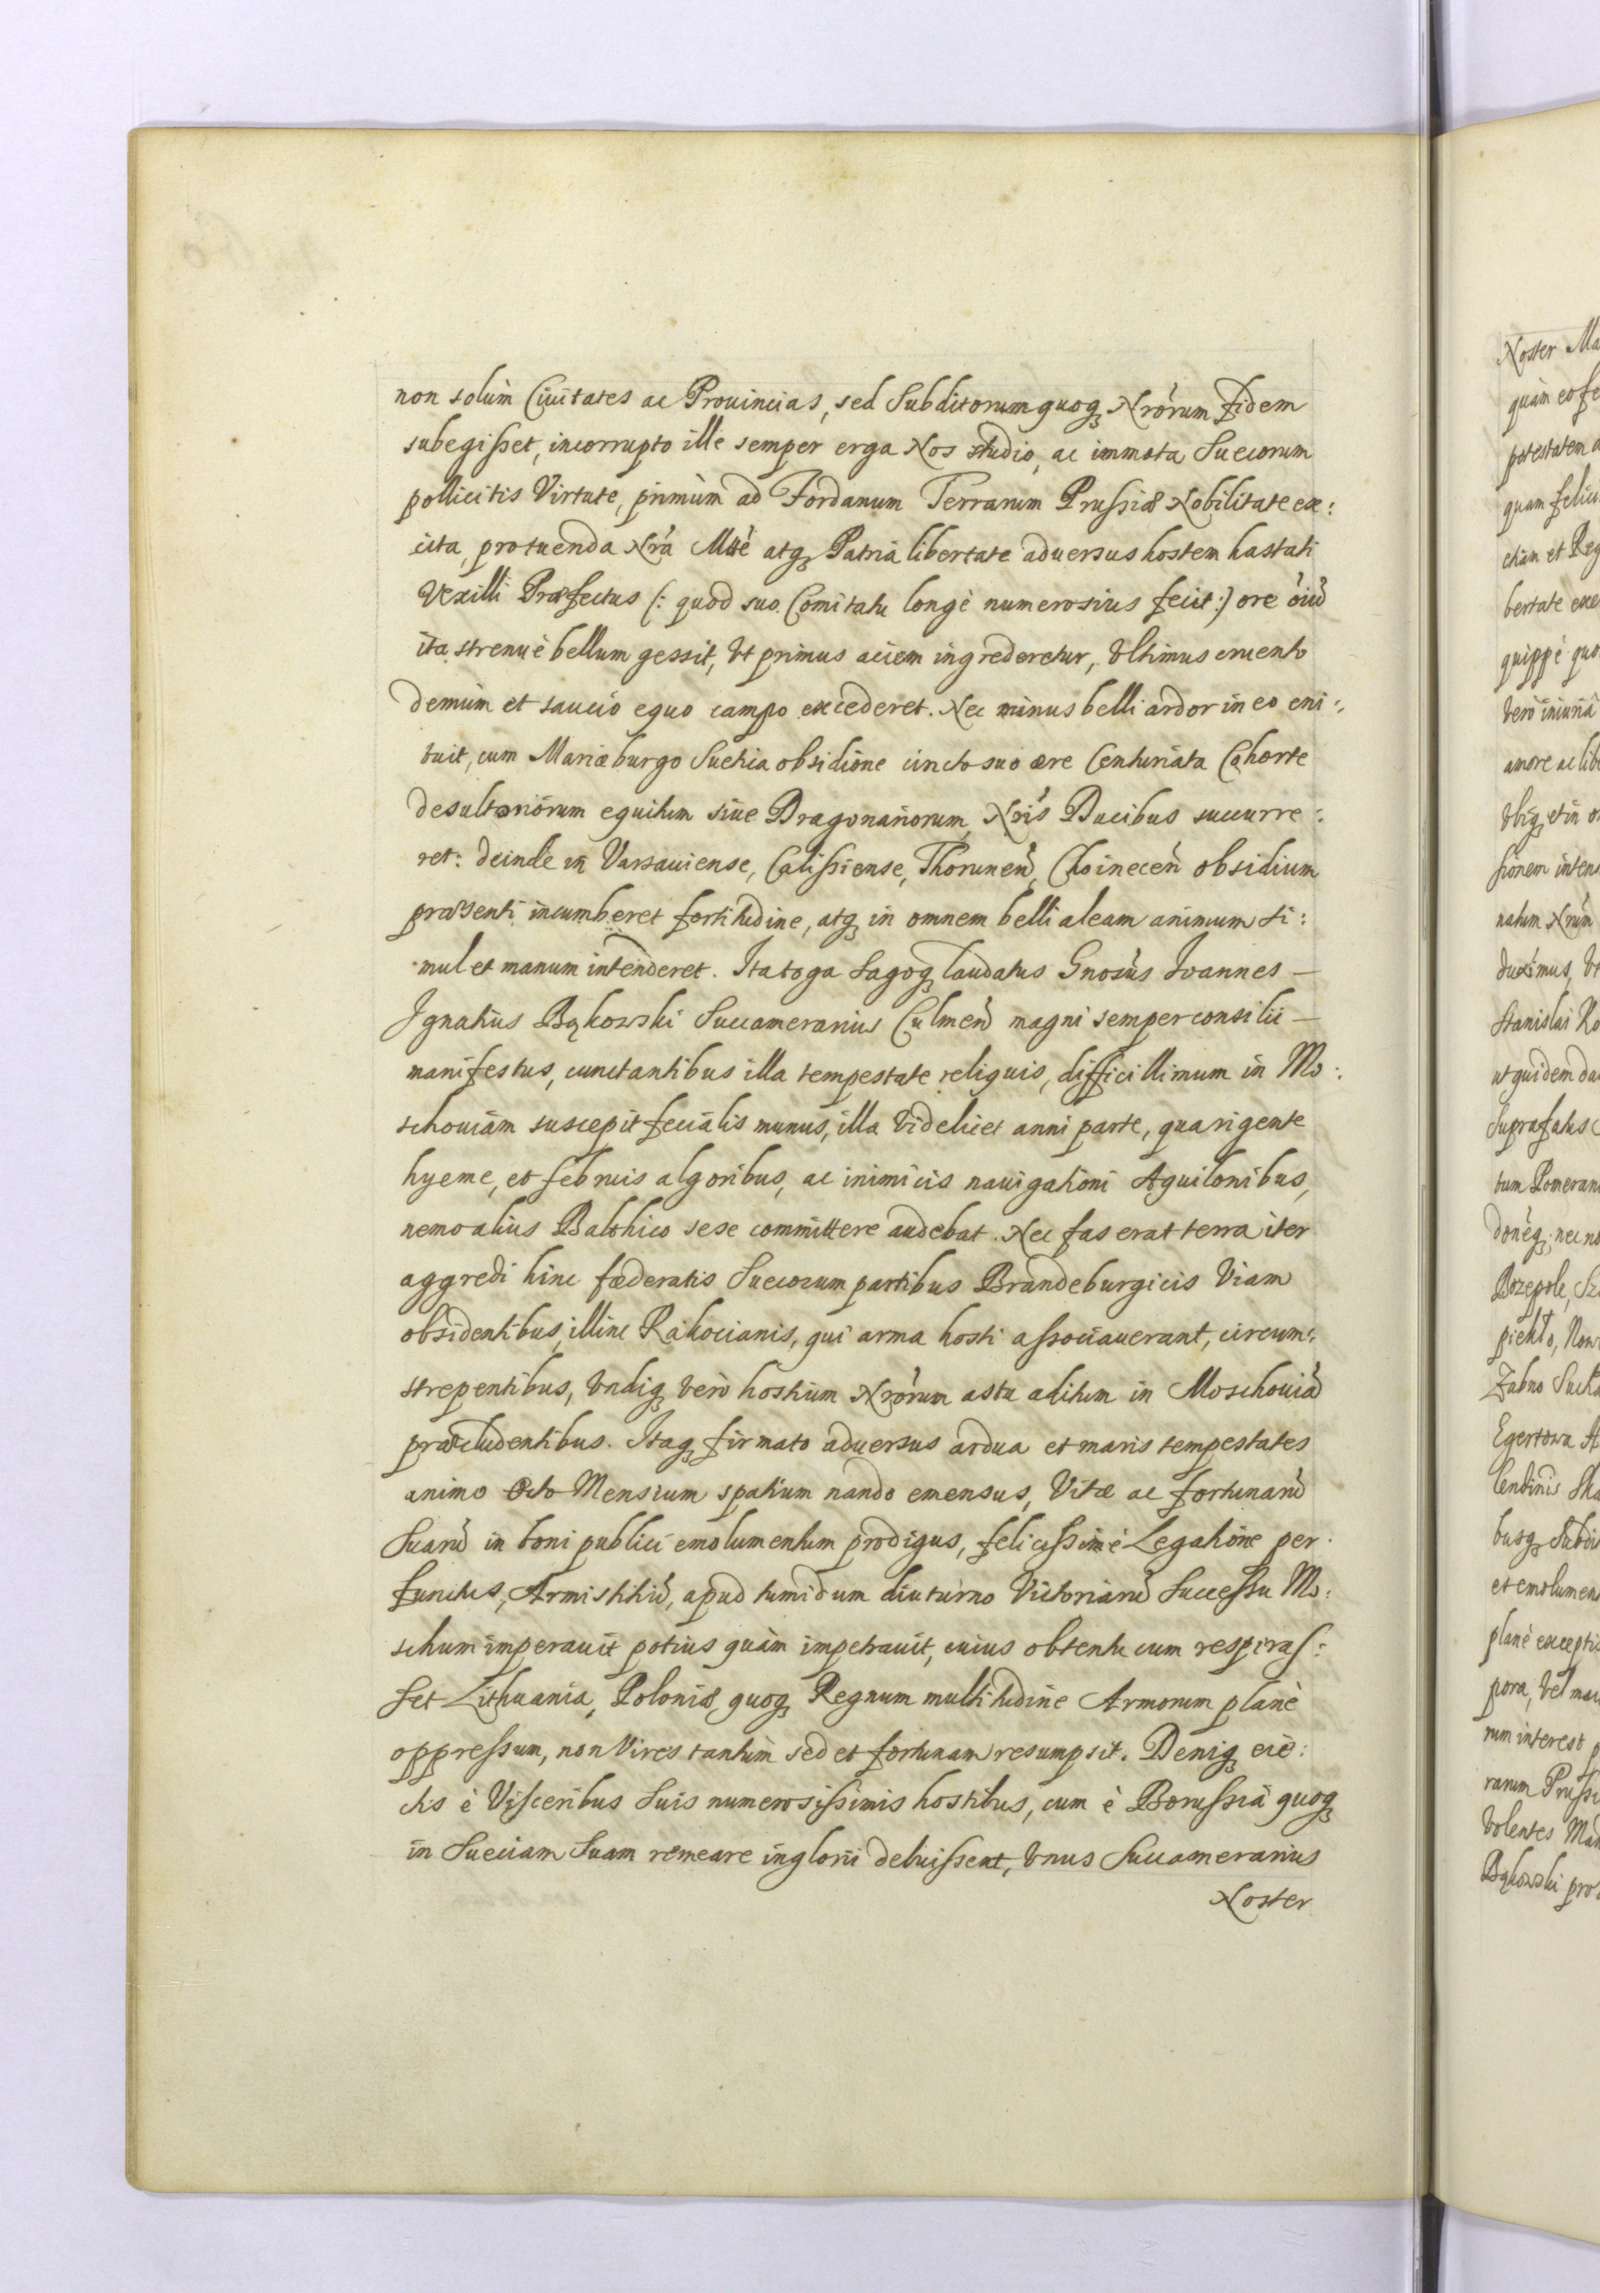 non solùm Ciuitates ac Prouincias, sed Subditorum quoq Nrórum Fidem
subegisset, incorrupto ille semper erga Nos studio, ac immota Suecorum
pollicitis Virtute, primùm ad Fordanum Terrarum Prussiæ Nobilitate ex:
cita, pro tuenda Nrá Mtté atq Patriâ libertate aduersus hostem hastati
Vexilli Præfectus (: quod suo Comitatu longè numerosius fecit :) ore óiũ
ita strenuè bellum gessit, Vt primus aciem ingrederetur, Vltimus cruento
demùm et saucio equo campo excederet. Nec minus belli ardor in eo eni:
tuit, cum Mariæburgo Suetica obsidione cincto suo ære Centuriata Cohorte
desultoriorum equitum siue Dragonariorum, Nris Ducibus succurre:
ret: deinde in Varsauiense, Calissiense, Thorunen, Choinecen obsidium
præsenti incumberet fortitudine, atq in omnem belli aleam animum si:
mul et manum intenderet. Ita toga Sagoq laudatus Gnosus Ioannes —
Ignatius Bąkowski Succamerarius Culmen magni semper consilii —
manifestus, cunctantibus illa tempestate reliquis, difficillimum in Mo:
schouiam suscepit fecialis munus, illa Videlicet anni parte, qua rigente
hyeme, et Februis algoribus, ac inimicis nauigationi Aquilonibus,
nemo alius Balthico sese committere audebat. Nec fas erat terra iter
aggredi hinc fæderatis Suecorum partibus Brandeburgicis Viam
obsidentibus, illinc Rakocianis, qui arma hosti associauerant, circum:
strepentibus, Vndiq Verò hostium Nrórum astu aditum in Moschouiã
præcludentibus. Itaq firmato aduersus ardua et maris tempestates
animo Octo Mensium spatium nando emensus, Vitæ ac fortunarũ
Suarũ in boni publici emolumentum prodigus, felicissimè Legatione per
functus, Armistitiũ, apud tumidum diuturno Victoriarũ Successu Mo:
schum imperauit potius quàm impetrauit, cuius obtentu cum respiras:
set Lithuania, Poloniæ, quoq Regnum multitudine Armorum planè
oppressum, non Vires tantùm sed et fortunam resumpsit. Deniq eie:
ctis è Visceribus Suis numerosissimis hostibus, cum è Borussiâ quoq
in Sueciam Suam remeare inglorii debuissent, Vnus Succamerarius
Noster